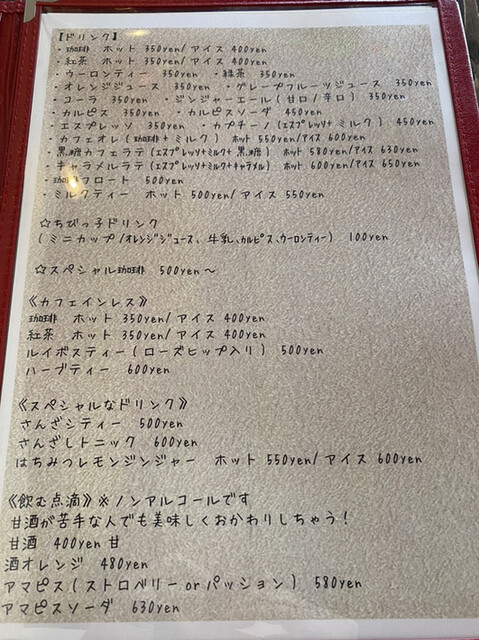 【ドリンク】
・珈琲 ホット 350yen/アイス 400yen
・紅茶 ホット 350yen/アイス 400yen
・ウーロンティー 350yen ・緑茶 350yen
・オレンジジュース 350yen ・グレープフルーツジュース 350yen
・コーラ 350yen ・ジンジャーエール(甘口/辛口) 350yen
・カルピス 350yen ・カルピスソーダ 450yen
・エスプレッソ 350yen ・カプチーノ(エスプレッソ+ミルク) 450yen
・カフェオレ(珈琲+ミルク) ホット 550yen/アイス 600yen
・黒糖カフェラテ(エスプレッソ+ミルク+黒糖) ホット 580yen/アイス 630yen
・キャラメルラテ(エスプレッソ+ミルク+キャラメル) ホット 600yen/アイス 650yen
・珈琲フロート 500yen
・ミルクティー ホット 500yen/アイス 550yen
☆ちびっ子ドリンク
(ミニカップ/オレンジジュース、牛乳、カルピス、ウーロンティー) 100yen
☆スペシャル珈琲 500yen～
《カフェインレス》
珈琲 ホット 350yen/アイス 400yen
紅茶 ホット 350yen/アイス 400yen
ルイボスティー(ローズヒップ入り) 500yen
ハーブティー 600yen
《スペシャルなドリンク》
さんざシティー 500yen
さんざしトニック 600yen
はちみつレモンジンジャー ホット 550yen/アイス 600yen
《飲む点滴》※ノンアルコールです
甘酒が苦手な人でも美味しくおかわりしちゃう！
甘酒 400yen 甘
酒オレンジ 480yen
アマピス(ストロベリーorパッション) 580yen
アマピスソーダ 630yen